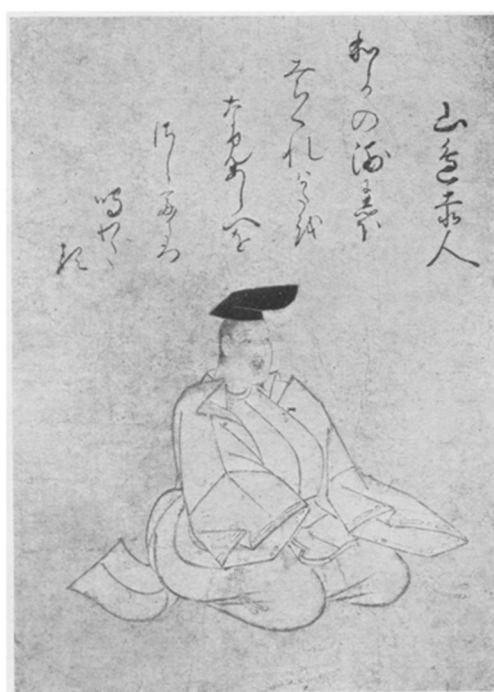 山邊赤人
和かの浦に志ほ
みちくれはかた越
なみあしへを
さして多つ
鳴わた
る